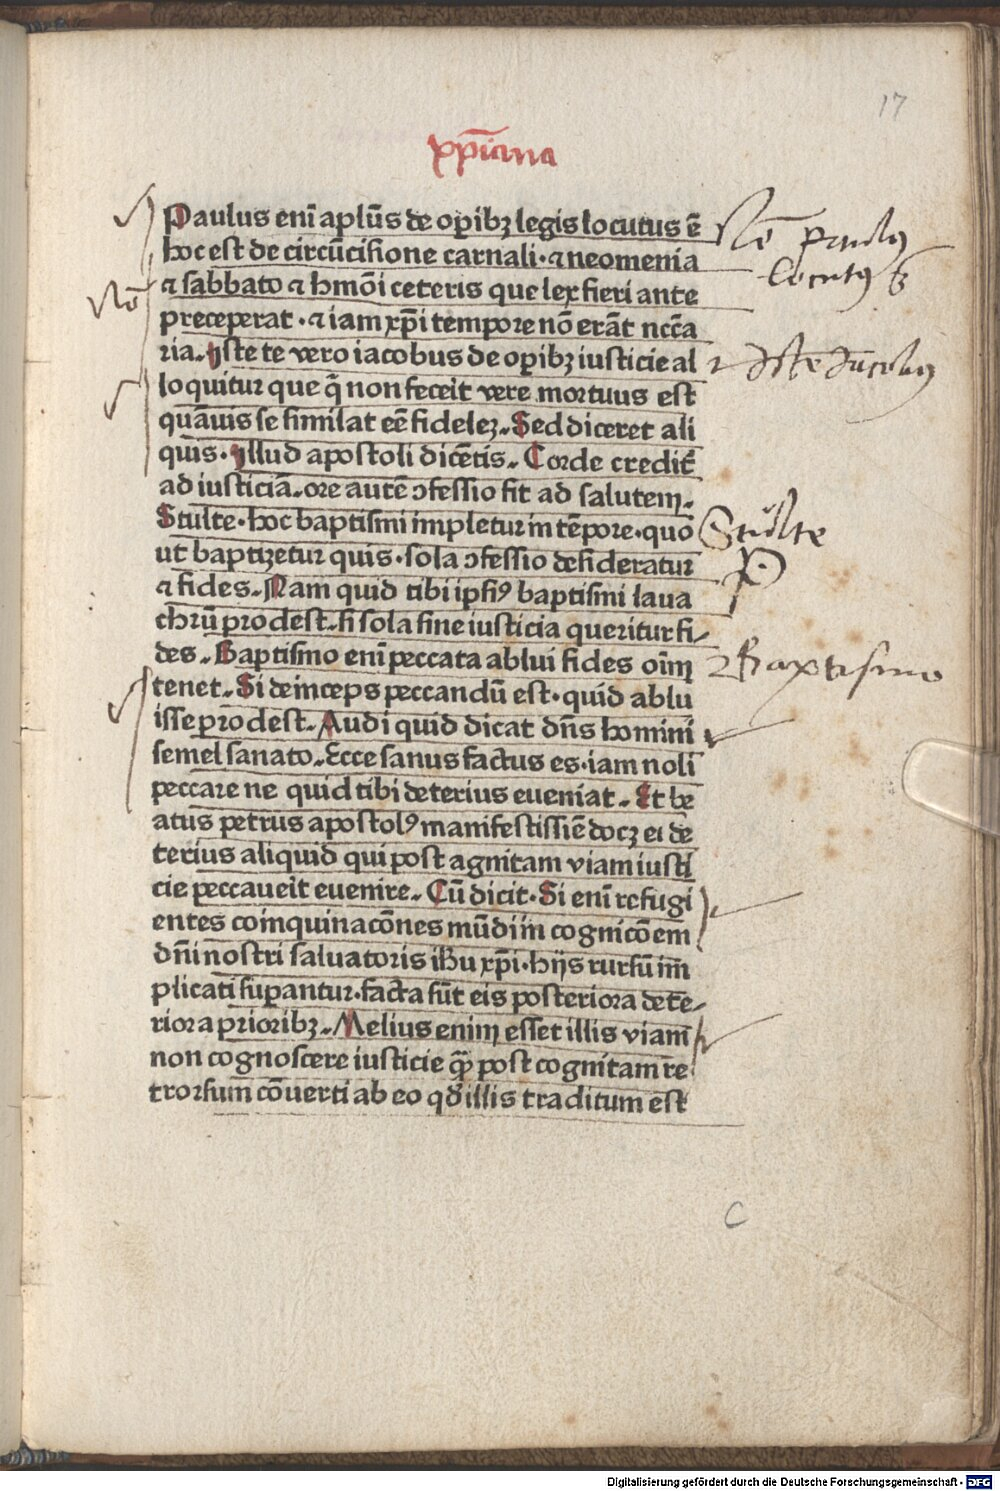 17
xp̄iana
Paulus enī apl̄us de oꝑibꝫ legis locutus ē
hoc est de circūcisione carnali · ⁊ neomenia
⁊ sabbato ⁊ hmōi ceteris que lex fieri ante
preceperat · ⁊ iam xp̄i tempore nō erāt nccā
ria. Iste te vero iacobus de oꝑibꝫ iusticie al
loquitur que q̄ non fecerit vere mortuus est
quāuis se similat eē fidelez. Sed diceret ali
quis · Illud apostoli dicētis. Corde credit̄
ad iusticiā. ore autē ↄfessio fit ad salutem.
Stulte · hoc baptismi impletur in tēpore · quo
ut baptizetur quis · sola ↄfessio desideratur
⁊ fides. Nam quid tibi ipsiꝰ baptismi laua
chrū prodest. si sola sine iusticia queritur fi-
des. Baptismo enī peccata ablui fides oīm
tenet. Si deinceps peccandū est · quid ablu
isse prodest. Audi quid dicat dn̄s homini
semel sanato. Ecce sanus factus es · iam noli
peccare ne quid tibi deterius eueniat. Et be
atus petrus apostolꝰ manifestissiē docꝫ ei de
terius aliquid qui post agnitam viam iusti
cie peccauerit euenire. Cū dicit · Si enī refugi
entes coinquinacōnes mūdi in cognicōem
dn̄i nostri saluatoris ihu xp̄i · hijs rursū im
plicati suꝑantur · facta sūt eis posteriora dete-
riora prioribꝫ. Melius enim esset illis viam
non cognoscere iusticie qꝫ̄ post cognitam re
trorsum cōuerti ab eo qd̄ illis traditum est
Nō paulꝰ
locutꝰ
Nō
Iste Iacobus
Stulte
Baptismo
C
Digitalisierung gefördert durch die Deutsche Forschungsgemeinschaft - DFG